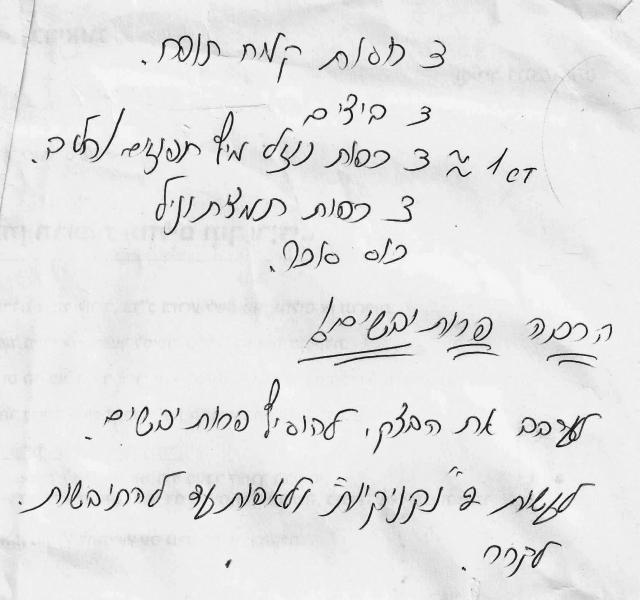 3 כוסות קמח תופח.
3 ביצים
1 ליטר ≈ 3 כוסות נוזל מיץ תפוזים/חלב.
3 כפות תמצית וניל
כוס סוכר.
הרבה פרות יבשים!
לערבב את הבצק, להוסיף פרות יבשים.
לעשות כ"נקניקיות" ולאפות עד להתיבשות.
לקרר.